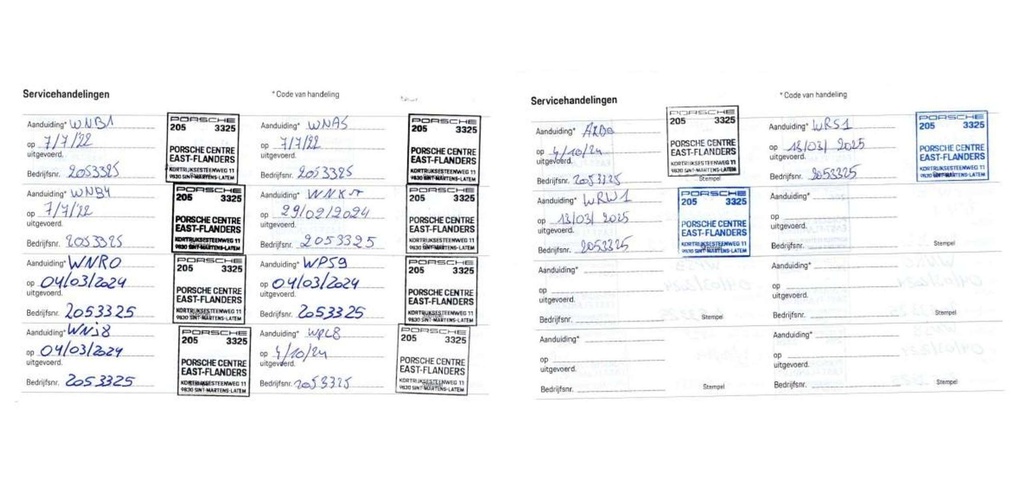 Servicehandelingen * Code van handeling
Aanduiding* WNB1
op 7/7/22
uitgevoerd.
Bedrijfsnr. 2053325
PORSCHE
205 3325
PORSCHE CENTRE
EAST-FLANDERS
KORTRIJKSESTEENWEG 11
9830 SINT-MARTENS-LATEM
Aanduiding* WNA5
op 7/7/22
uitgevoerd.
Bedrijfsnr. 2053325
PORSCHE
205 3325
PORSCHE CENTRE
EAST-FLANDERS
KORTRIJKSESTEENWEG 11
9830 SINT-MARTENS-LATEM
Aanduiding* WNB4
op 7/7/22
uitgevoerd.
Bedrijfsnr. 2053325
PORSCHE
205 3325
PORSCHE CENTRE
EAST-FLANDERS
KORTRIJKSESTEENWEG 11
9830 SINT-MARTENS-LATEM
Aanduiding*
op 29/02/2024
uitgevoerd.
Bedrijfsnr. 2053325
PORSCHE
205 3325
PORSCHE CENTRE
EAST-FLANDERS
KORTRIJKSESTEENWEG 11
9830 SINT-MARTENS-LATEM
Aanduiding* WNRO
op 04/03/2024
uitgevoerd.
Bedrijfsnr. 2053325
PORSCHE
205 3325
PORSCHE CENTRE
EAST-FLANDERS
KORTRIJKSESTEENWEG 11
9830 SINT-MARTENS-LATEM
Aanduiding* WP59
op 04/03/2024
uitgevoerd.
Bedrijfsnr. 2053325
PORSCHE
205 3325
PORSCHE CENTRE
EAST-FLANDERS
KORTRIJKSESTEENWEG 11
9830 SINT-MARTENS-LATEM
Aanduiding* WNJ8
op 04/03/2024
uitgevoerd.
Bedrijfsnr. 2053325
PORSCHE
205 3325
PORSCHE CENTRE
EAST-FLANDERS
KORTRIJKSESTEENWEG 11
9830 SINT-MARTENS-LATEM
Aanduiding*
op 4/10/24
uitgevoerd.
Bedrijfsnr. 2053325
PORSCHE
205 3325
PORSCHE CENTRE
EAST-FLANDERS
KORTRIJKSESTEENWEG 11
9830 SINT-MARTENS-LATEM
Servicehandelingen * Code van handeling
Aanduiding*
op 4/10/24
uitgevoerd.
Bedrijfsnr. 2053325
PORSCHE
205 3325
PORSCHE CENTRE
EAST-FLANDERS
KORTRIJKSESTEENWEG 11
9830 SINT-MARTENS-LATEM
Stempel
Aanduiding* WRS1
op 13/03/2025
uitgevoerd.
Bedrijfsnr. 2053325
PORSCHE
205 3325
PORSCHE CENTRE
EAST-FLANDERS
KORTRIJKSESTEENWEG 11
9830 SINT-MARTENS-LATEM
Aanduiding* WRW1
op 13/03/2025
uitgevoerd.
Bedrijfsnr. 2053325
PORSCHE
205 3325
PORSCHE CENTRE
EAST-FLANDERS
KORTRIJKSESTEENWEG 11
9830 SINT-MARTENS-LATEM
Aanduiding*
op
uitgevoerd.
Bedrijfsnr. Stempel
Aanduiding*
op
uitgevoerd.
Bedrijfsnr. Stempel
Aanduiding*
op
uitgevoerd.
Bedrijfsnr. Stempel
Aanduiding*
op
uitgevoerd.
Bedrijfsnr. Stempel
Aanduiding*
op
uitgevoerd.
Bedrijfsnr. Stempel